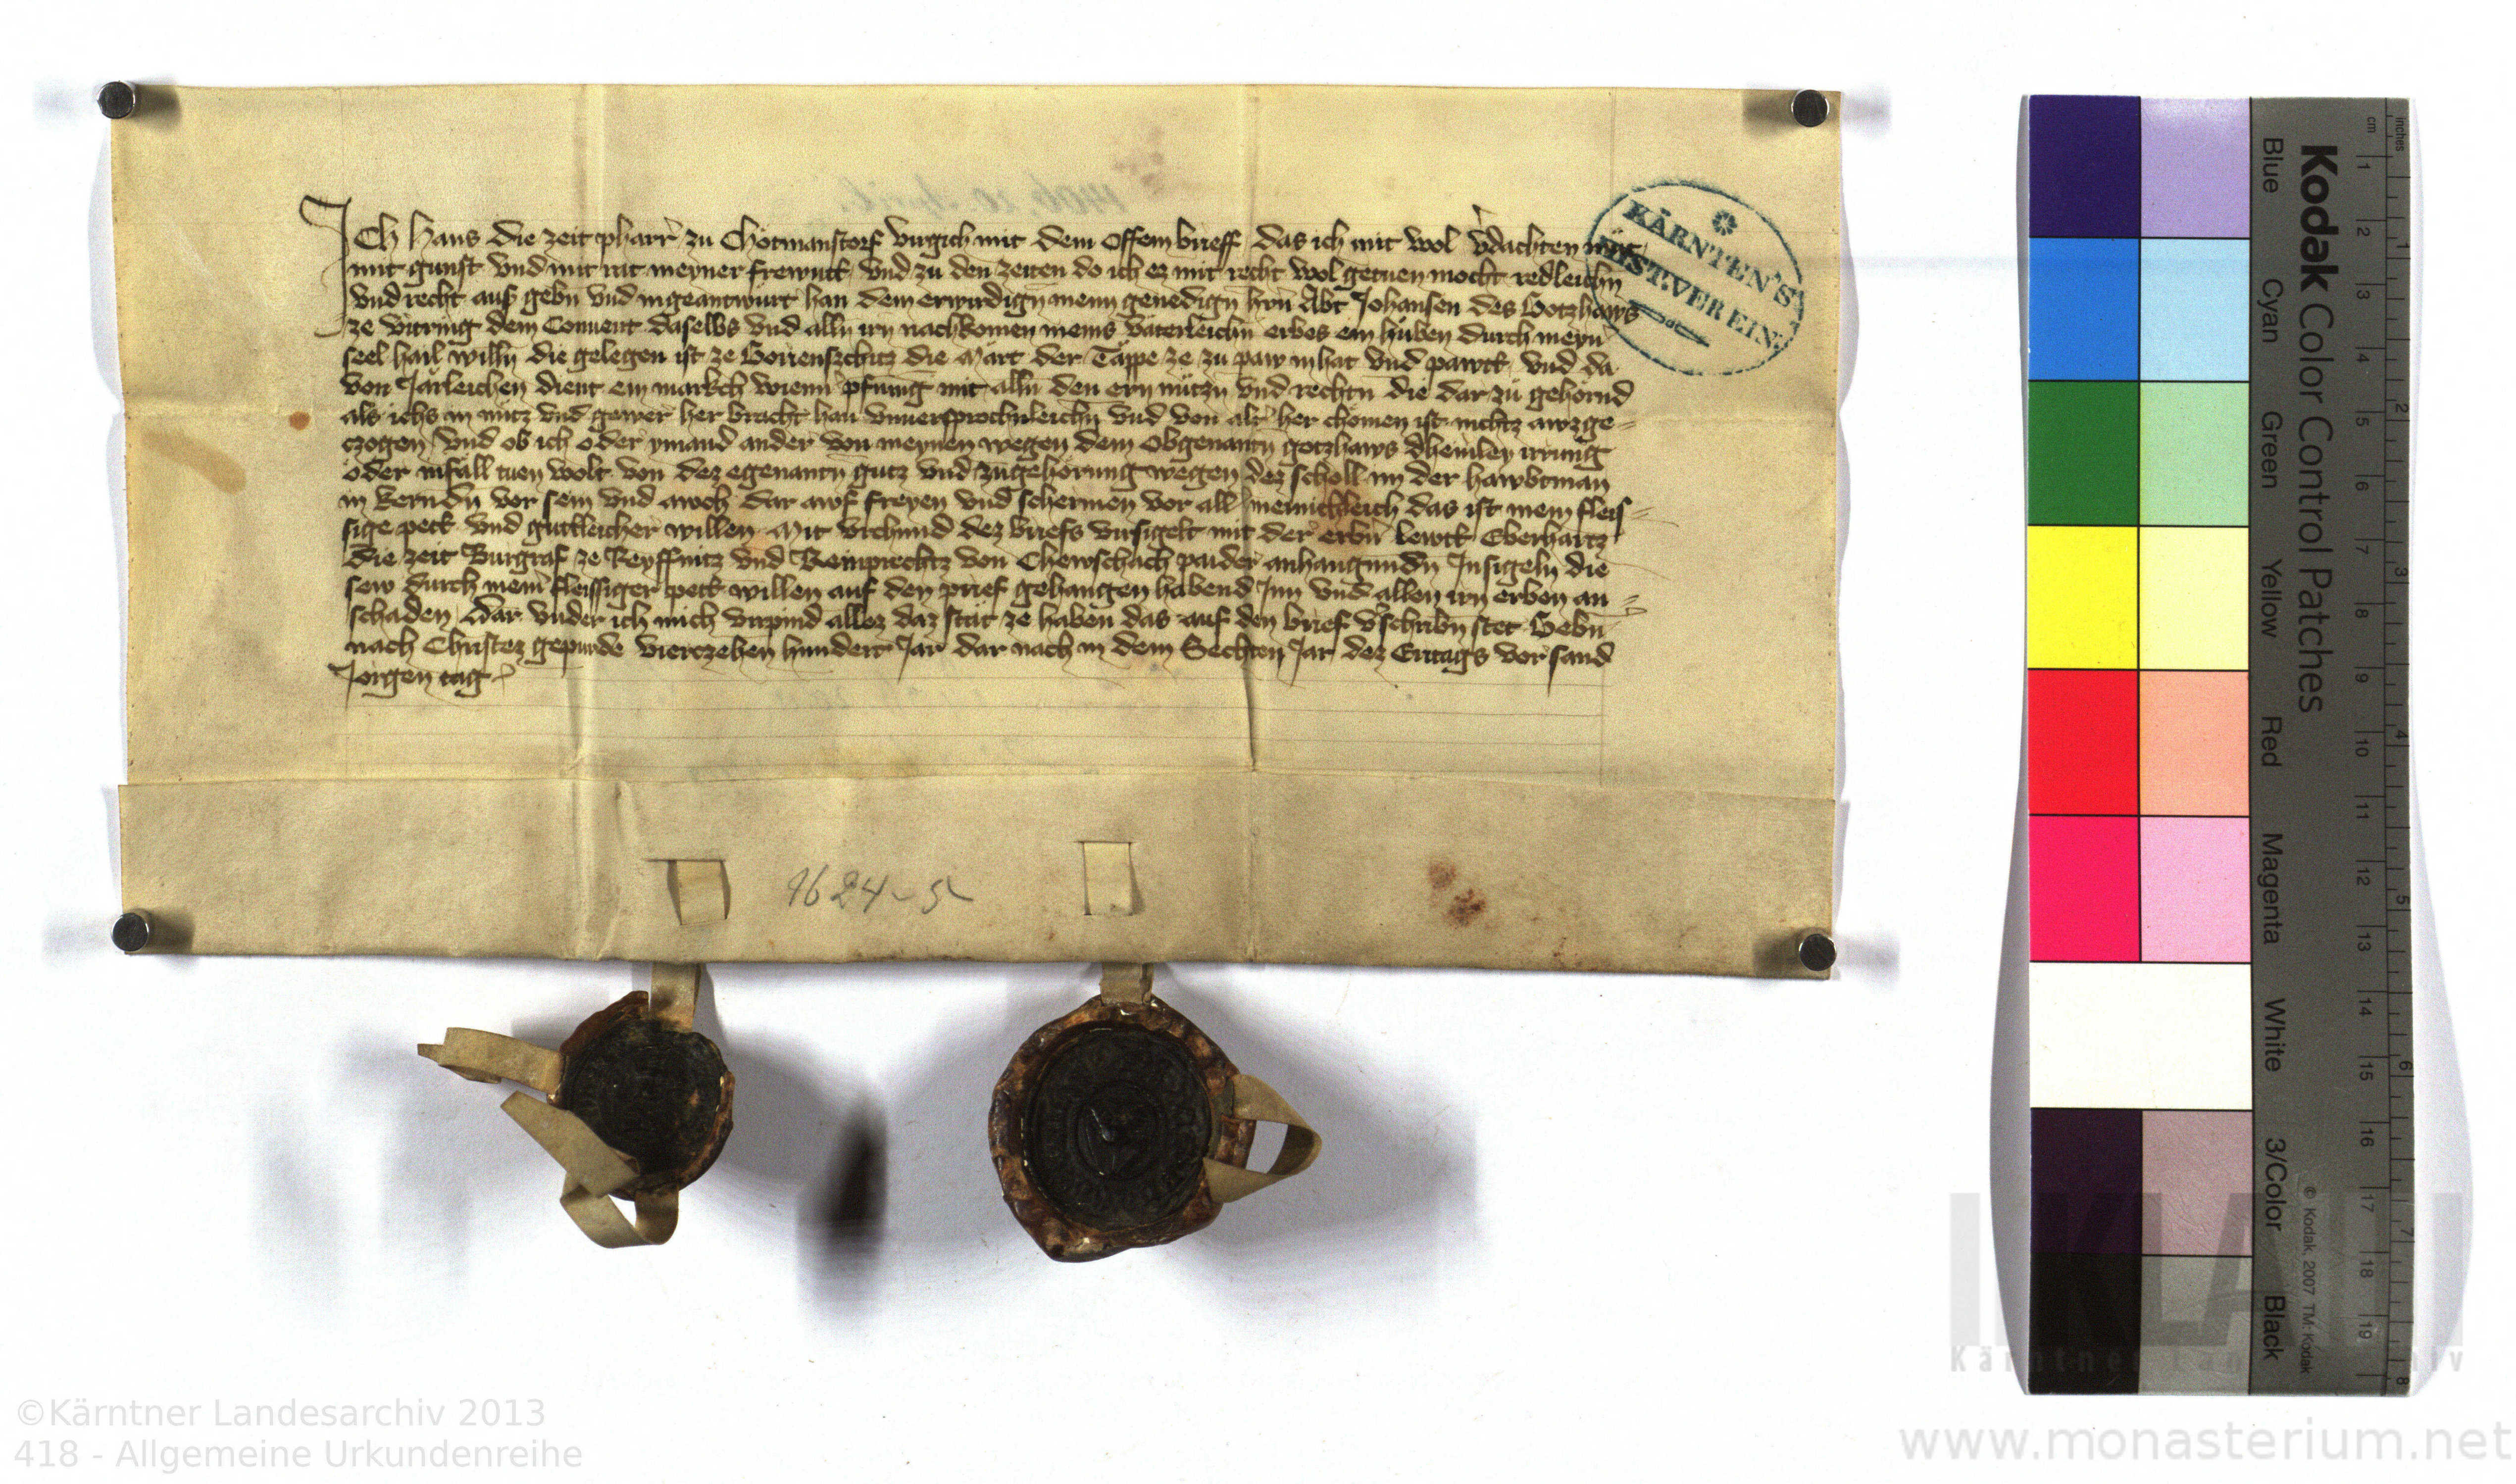 ICh Hans die zeit pharrˀ zu Chötmanstorf virgich mit dem offem brieff das ich mit wol vˀdachten müt
mit gunst vnd mit rat meyner frewntt vnd zu den zeiten do ich ez mit recht wol getuen mocht redleichn
vnd recht auf gebn vnd ingeantwurt han dem erwirdign meim genedign hrn Abt Johansen des Gotzhaws
ze vitring dem Conuent daselbs vnd alln irn nachkomen meins väterleichn erbes ein huben durch meyn
seel hail willn die gelegen ist ze die Märt der Täppe ze zu paw in hat vnd pawtt vnd da
von Järleichen dient ein markch wienn pfning mit alln den ern nützn vnd rechtn die dar zü gehörnd
als ichs in nütz vnd gewer her bracht han vnuersprochnleichn vnd von altˀ her chömen ist nichtz awzge=
czogen Vnd ob ich oder ymand ander von meynen wegen dem obgenantn gotzhaws dheinley irrung
oder infäll tuen wolt von dez egenantn gütz vnd zugehörung wegen dez scholl im der hawbtman
in kerndn vor sein vnd awch dar awf freyen vnd schermen vor all meinichleich das ist mein fleis=
sige pett vnd güttleicher willen Mit vrchund dez briefs virsigelt mit der erbn lewtt Eberhartz
die zeit Burgraf ze Reyffnitz vnd Reinprechtz von Chewschach paider anhangundn Insigeln die
sew durch meinˀ fleissiger pett willen auf den prief gehangen habend Inn vnd allen irn erben an=
schaden dar vnder ich mich virpind allez daz stät ze haben das auf den brief vˀschribn stet Gebn
nach Christez gepurde vierczehen hundert Jar dar nach in dem Sechten Jar dez Eritags vor sand
Jorgen tag
KÄRNTEN'S
HIST. VEREIN.
1624-5
Kodak Color Control Patches
Blue Cyan Green Yellow Red Magenta White 3/Color Black
cm 1 2 3 4 5 6 7 8 9 10 11 12 13 14 15 16 17 18 19
inches 1 2 3 4 5 6 7 8
© Kodak, 2007 TM: Kodak
©Kärntner Landesarchiv 2013
418 - Allgemeine Urkundenreihe
www.monasterium.net